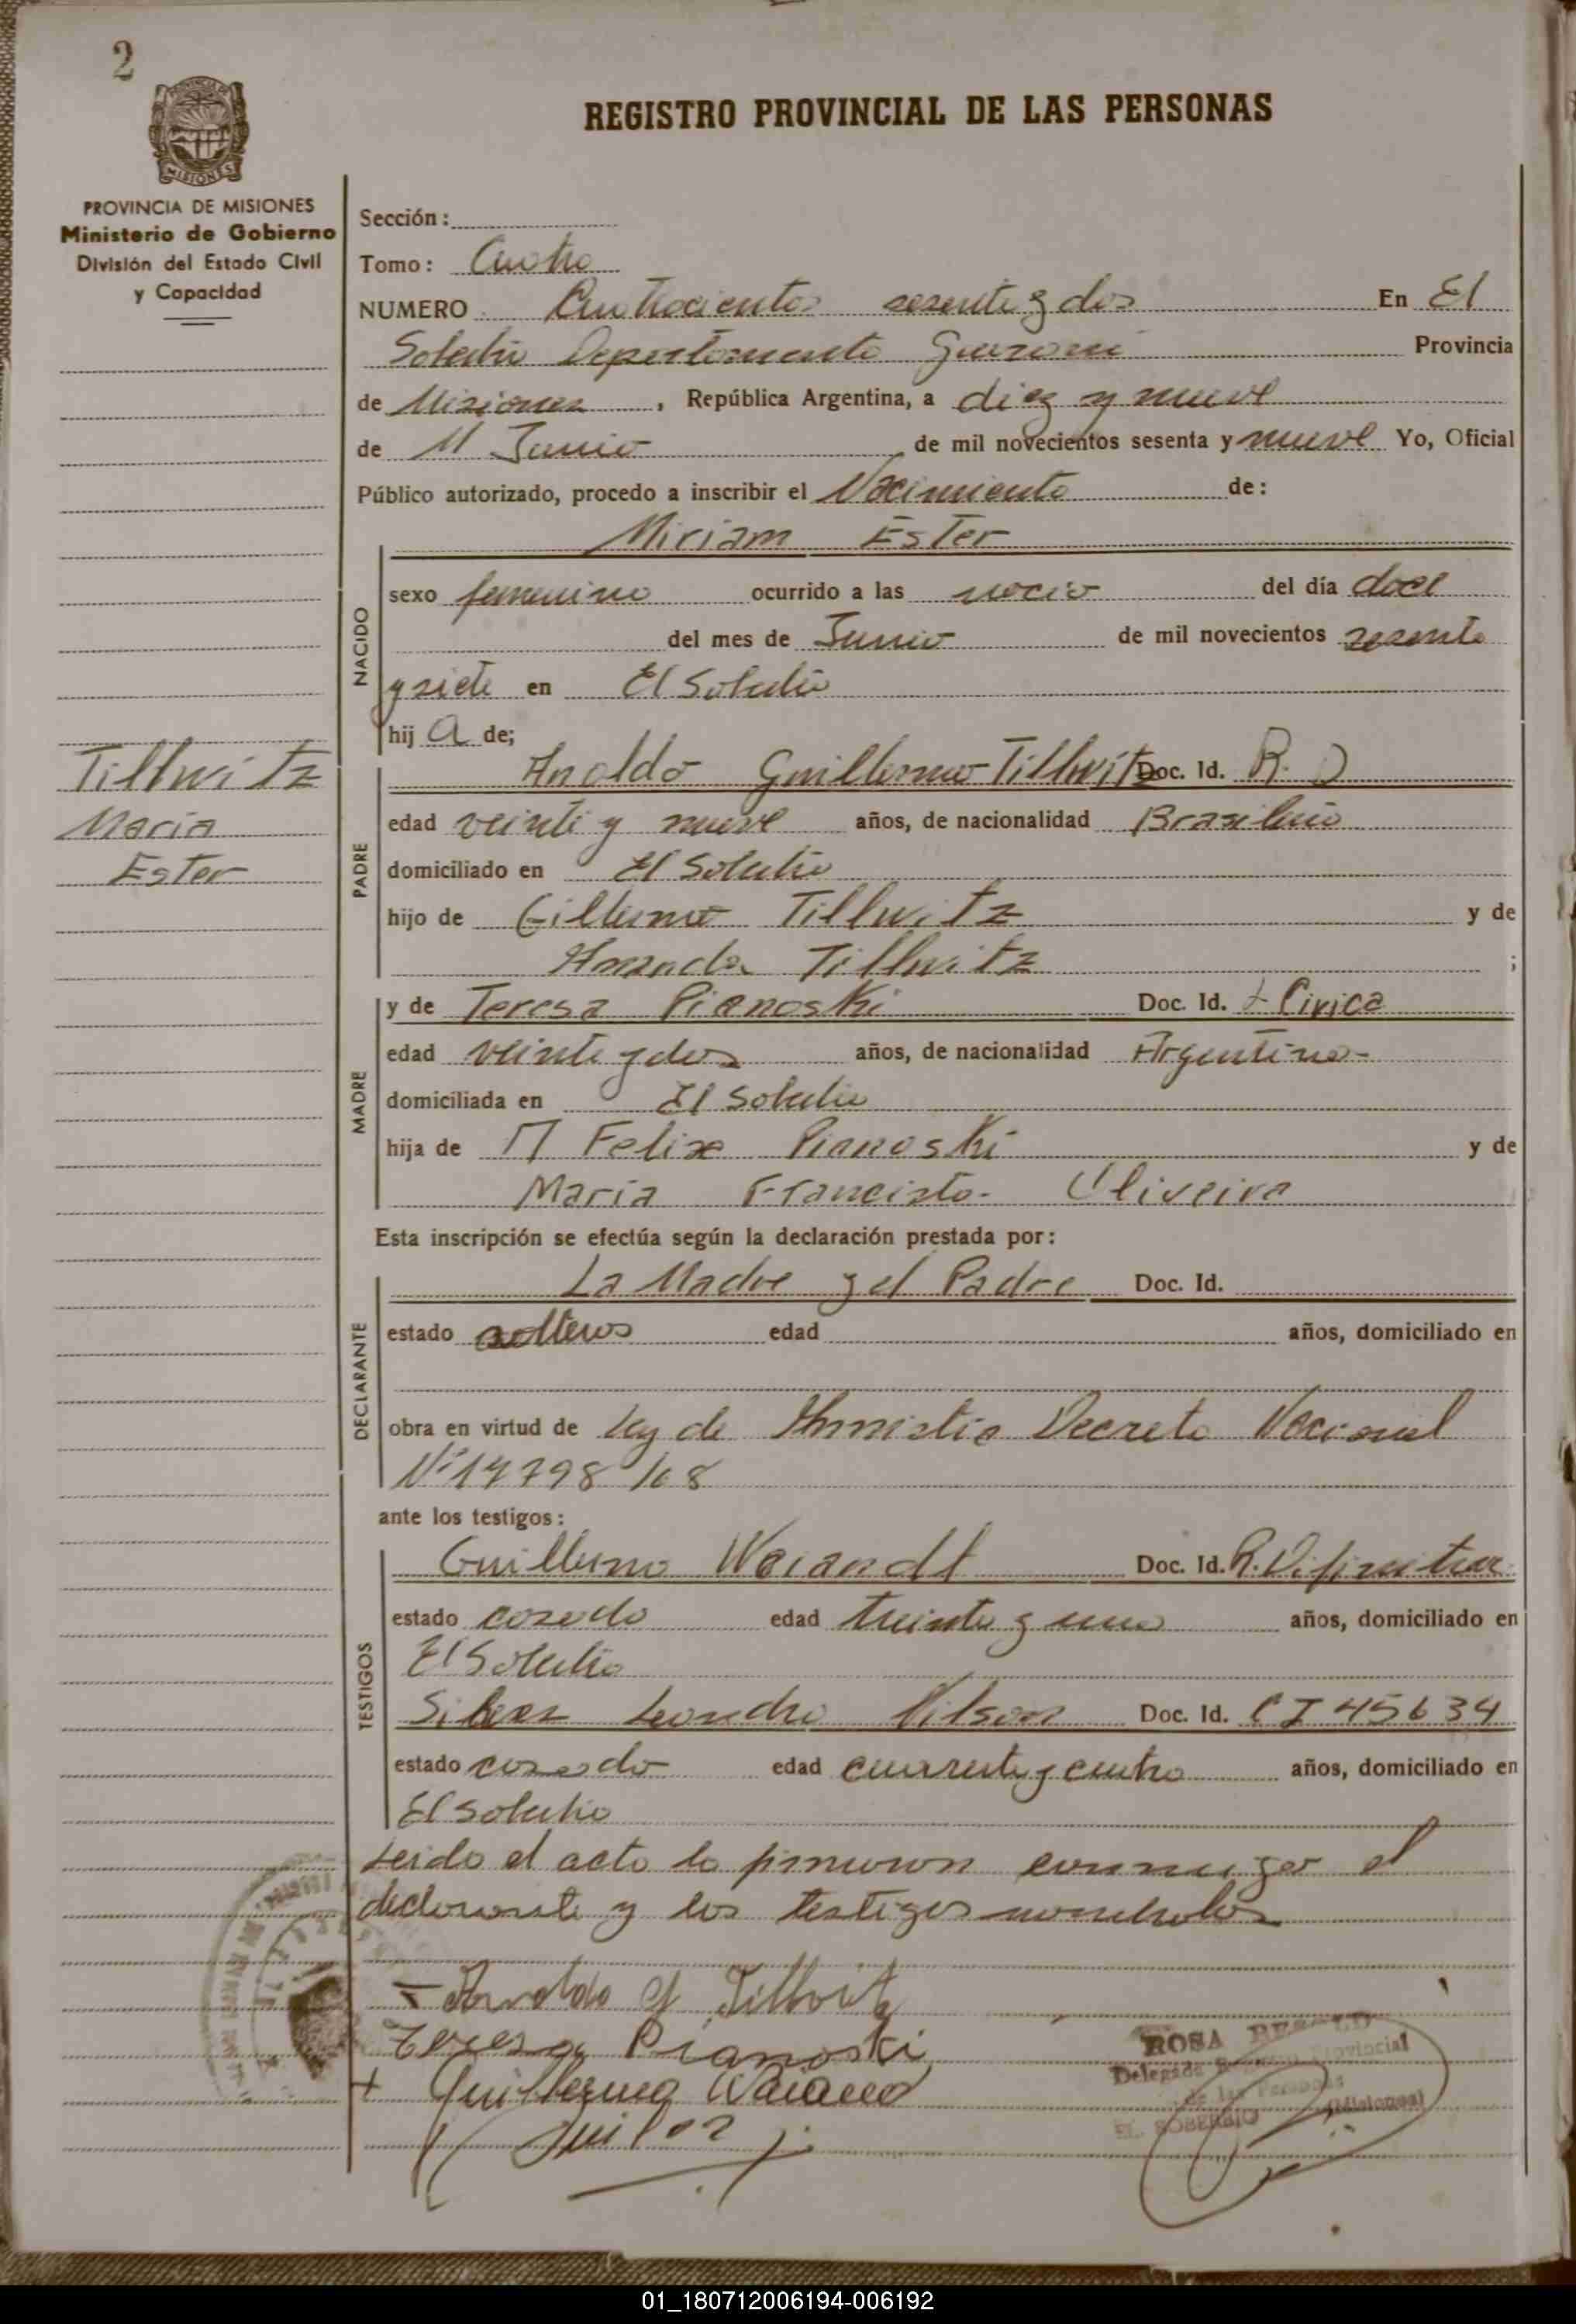 2
PROVINCIA DE MISIONES
MISIONES
REGISTRO PROVINCIAL DE LAS PERSONAS
PROVINCIA DE MISIONES
Ministerio de Gobierno
División del Estado Civil
y Capacidad
Sección:
Tomo: Cuatro
NUMERO Cuatrocientos sesenta y dos En El
Departamento Guarani Provincia
de Misiones, República Argentina, a diez y nueve
de Junio de mil novecientos sesenta y nueve Yo, Oficial
Público autorizado, procedo a inscribir el Nacimiento de:
Miriam Ester
NACIDO
sexo femenino ocurrido a las del día doce
del mes de Junio de mil novecientos sesenta
y siete en El
hij a de;
Tillwitz
Maria
Ester
PADRE
Guillermo Tillwitz Doc. Id.
edad veinti y nueve años, de nacionalidad
domiciliado en El
hijo de Tillwitz y de
Tillwitz ;
MADRE
y de Teresa Pianoski Doc. Id. L Civica
edad veinte y dos años, de nacionalidad Argentina-
domiciliada en El
hija de Felix Pianoski y de
Maria Oliveira
Esta inscripción se efectúa según la declaración prestada por:
DECLARANTE
La Madre y el Padre Doc. Id.
estado solteros edad años, domiciliado en
obra en virtud de ley de Amnistia Decreto Nacional
Nº 17798/68
ante los testigos:
TESTIGOS
Guillermo Doc. Id.
estado casado edad treinta y uno años, domiciliado en
El
Doc. Id. CI 45634
estado casado edad cuarenta y cuatro años, domiciliado en
El
Leido el acta la firmaron conmigo el
declarante y los testigos
Teresa Pianoski
ROSA
Delegada Provincial
de las Personas
EL SOBERBIO (Misiones)
01_180712006194-006192